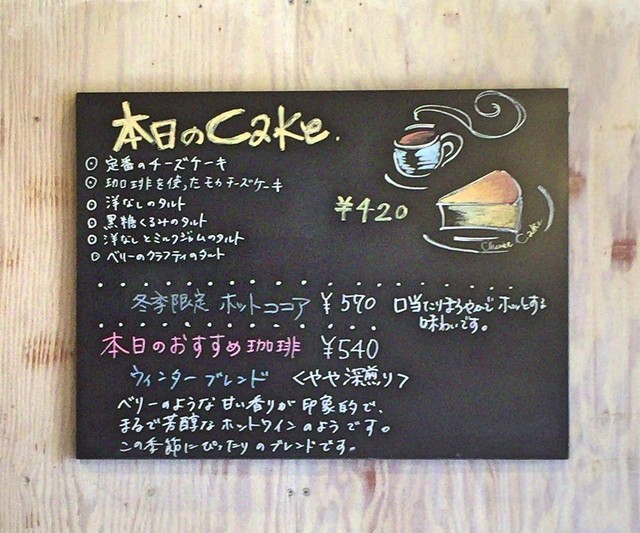 本日のCake.
◎ 定番のチーズケーキ
◎ 珈琲を使ったモカチーズケーキ
◎ 洋なしのタルト
◎ 黒糖くるみのタルト
◎ 洋なしとミルクジャムのタルト
◎ ベリーのクラフティのタルト
¥420
Cheese Cake
冬季限定 ホットココア ¥590 口当たりまろやかで ホッとする
味わいです。
本日のおすすめ珈琲 ¥540
ウィンターブレンド <やや深煎り>
ベリーのような甘い香りが印象的で、
まるで芳醇なホットワインのようです。
この季節にぴったりのブレンドです。